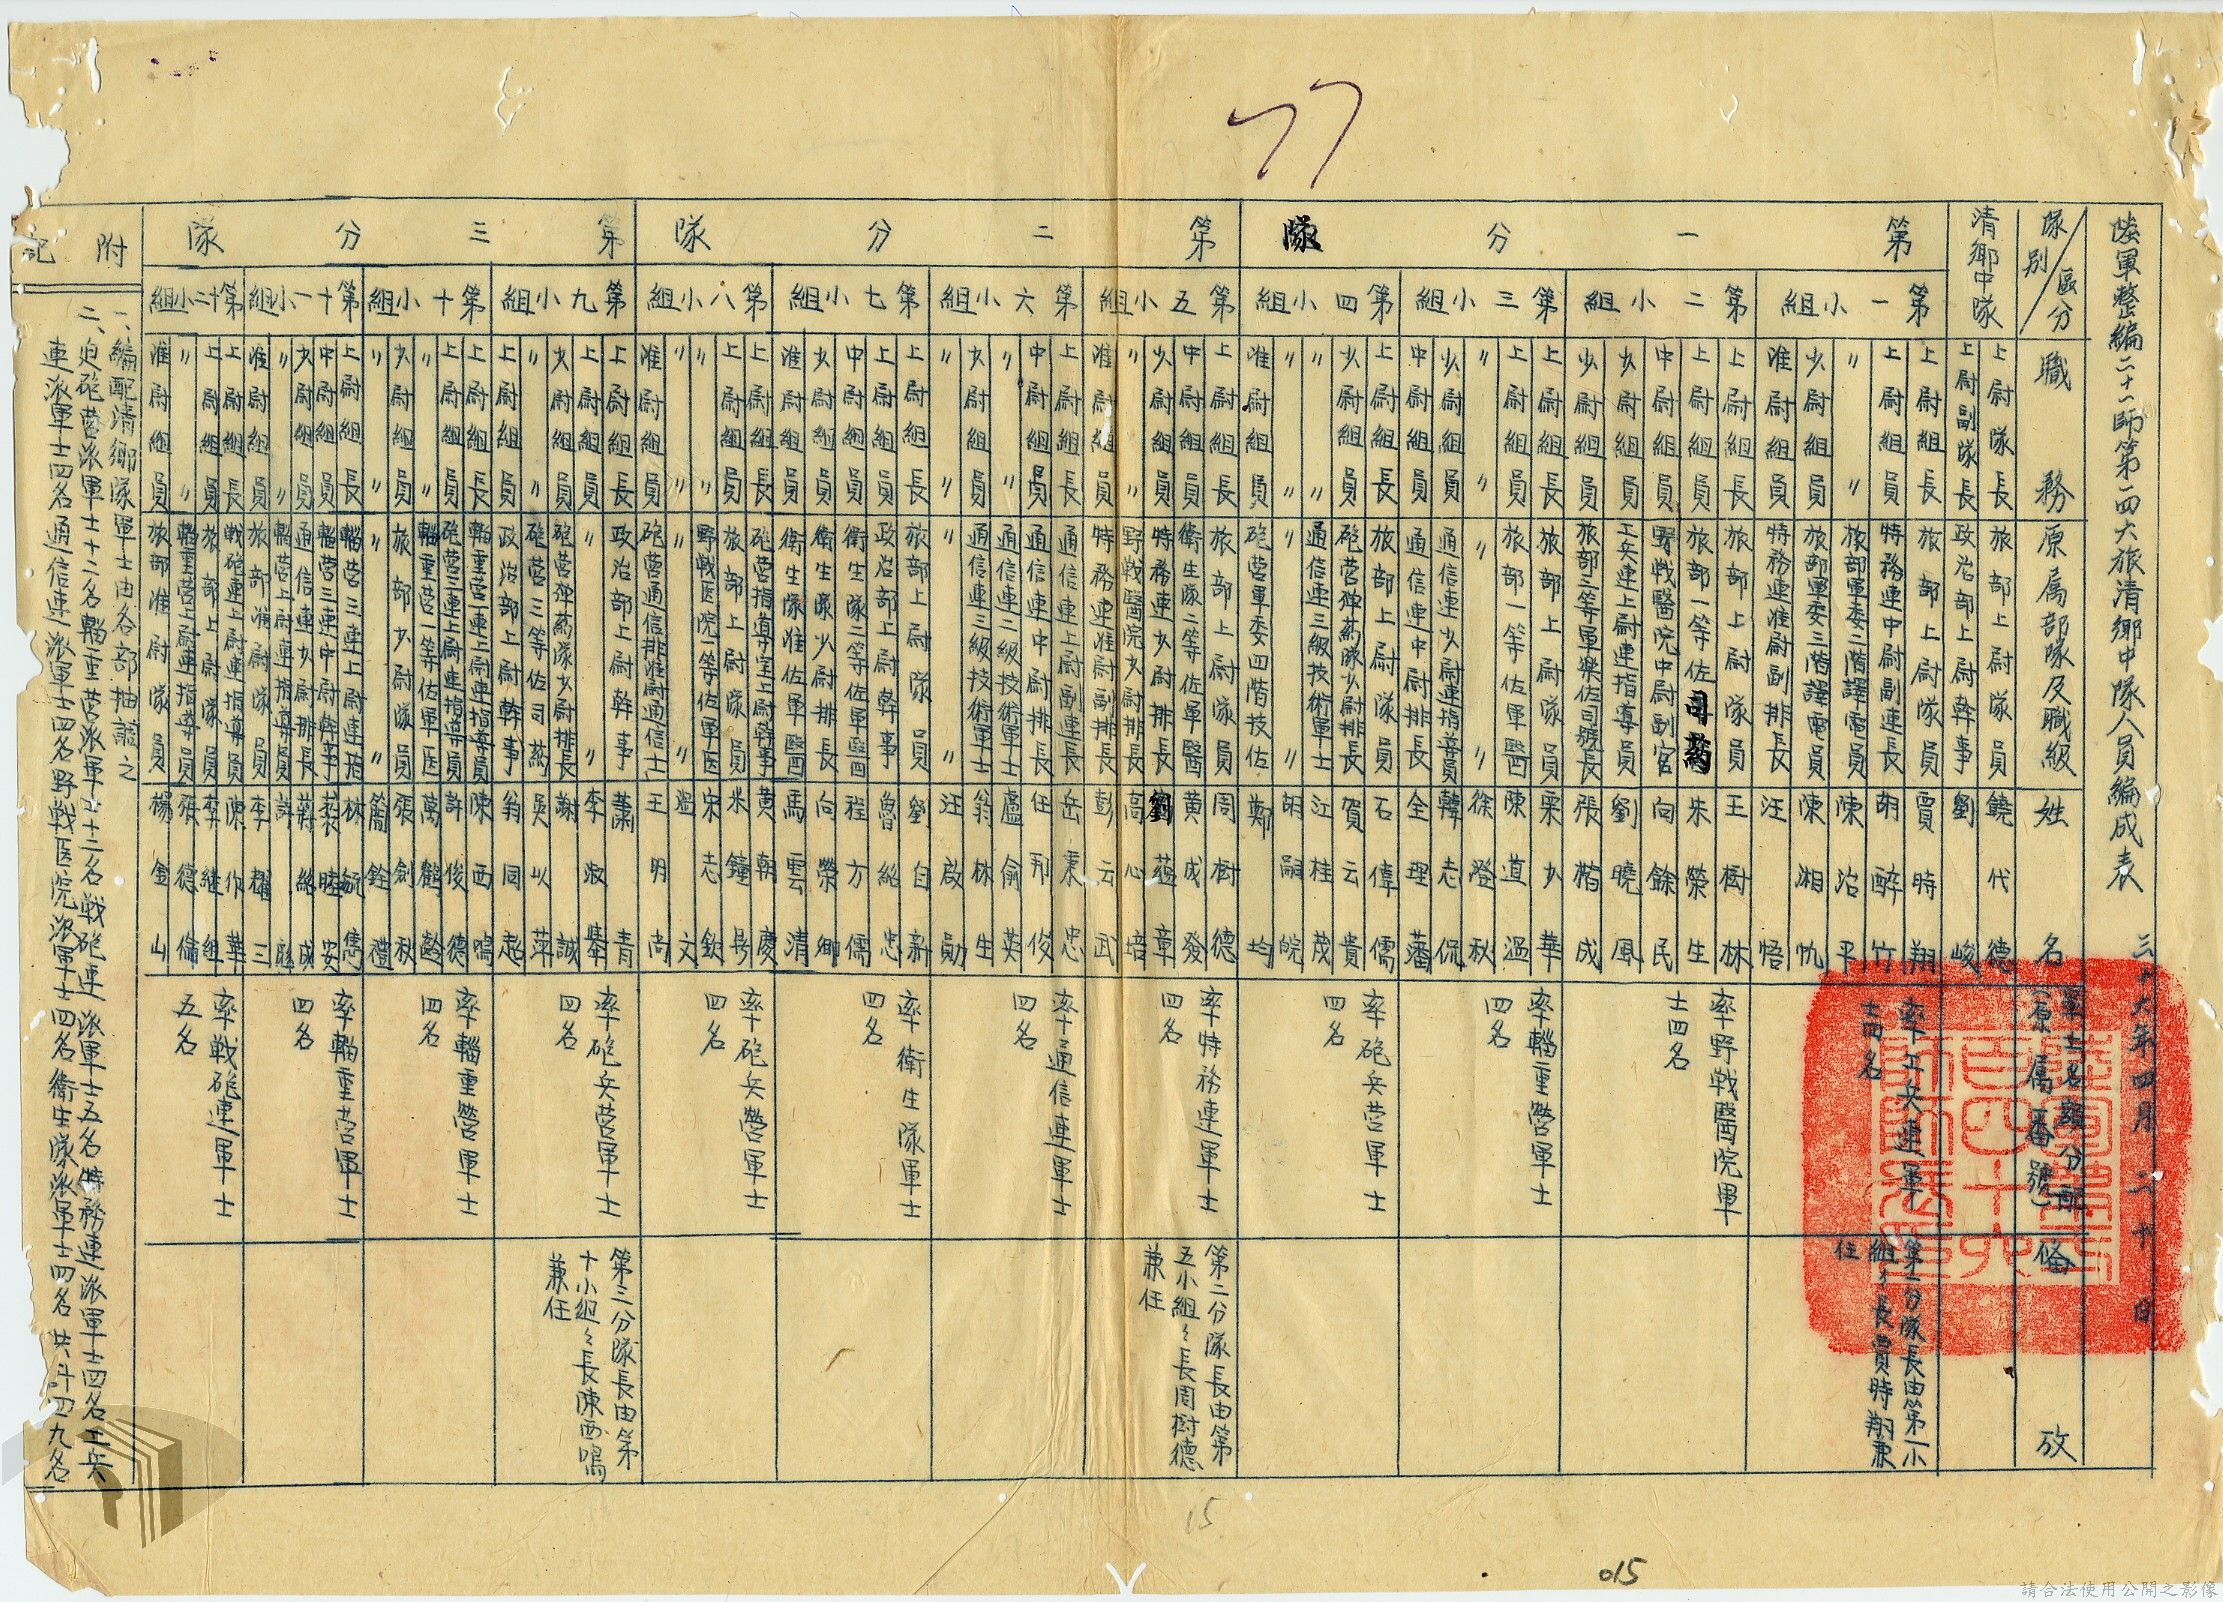 陸軍整編二十一師第一四六旅清鄉中隊人員編成表
三十六年四月二十日
隊別 區分
職務
原屬部隊及職級
姓名
軍士名額分配
(原屬番號)
備攷
清鄉中隊
上尉隊長 旅部上尉隊員 饒代德
上尉副隊長 政治部上尉幹事 劉峻
第一分隊
第一小組
上尉組長 旅部上尉隊員 賈時翔
上尉組員 特務連中尉副連長 胡醉竹
〃 〃 旅部軍委二階譯電員 陳治平
少尉組員 旅部軍委三階譯電員 陳湘帆
准尉組員 特務連准尉副排長 汪悟
率工兵連軍
士四名
第一分隊長由第一小
組々長賈時翔兼
任
第二小組
上尉組長 旅部上尉隊員 王樹林
上尉組員 旅部一等佐司藥 朱榮生
中尉組員 野戰醫院中尉副官 向餘民
少尉組員 工兵連上尉連指導員 劉曉風
少尉組員 旅部三等軍樂佐司號長 張楷成
率野戰醫院軍
士四名
第三小組
上尉組長 旅部上尉隊員 宋少華
上尉組員 旅部一等佐軍醫 陳道溫
〃 〃 〃 〃 徐澄秋
少尉組員 通信連少尉連指導員 韓志侃
中尉組員 通信連中尉排長 全理藩
率輜重營軍士
四名
第四小組
上尉組長 旅部上尉隊員 石偉儒
少尉組員 砲營彈藥隊少尉排長 賀云貴
〃 〃 通信連三級技術軍士 江桂茂
〃 〃 〃 〃 胡嗣皖
准尉組員 砲營軍委四階技佐 鄭均
率砲兵營軍士
四名
第二分隊
第五小組
上尉組長 旅部上尉隊員 周樹德
中尉組員 衛生隊二等佐軍醫 黃成發
少尉組員 特務連少尉排長 劉蘊章
〃 〃 野戰醫院少尉排長 高心培
准尉組員 特務連准尉副排長 彭云武
率特務連軍士
四名
第二分隊長由第
五小組々長周樹德
兼任
第六小組
上尉組長 通信連上尉副連長 岳秉忠
中尉組員 通信連中尉排長 任邦俊
〃 〃 通信連二級技術軍士 盧俞英
少尉組員 通信連三級技術軍士 翁林生
〃 〃 〃 〃 汪啟勛
率通信連軍士
四名
第七小組
上尉組長 旅部上尉隊員 劉自新
上尉組員 政治部上尉幹事 魯紹忠
中尉組員 衛生隊二等佐軍醫 程方儒
少尉組員 衛生隊少尉排長 向榮卿
准尉組員 衛生隊准佐軍醫 馬雲清
率衛生隊軍士
四名
第八小組
上尉組長 砲營指導室上尉幹事 黃朝慶
上尉組員 旅部上尉隊員 米鐘長
〃 〃 野戰医院一等佐軍医 宋志欽
〃 〃 〃 〃 溫文
准尉組員 砲營通信排准尉通信士 王明尚
率砲兵營軍士
四名
第三分隊
第九小組
上尉組長 政治部上尉幹事 蕭青
上尉組員 〃 〃 李淑華
少尉組員 砲營彈藥隊少尉排長 謝誠
〃 〃 砲營三等佐司药 吳以萍
上尉組員 政治部上尉幹事 翁同起
率砲兵營軍士
四名
第三分隊長由第
十小組々長陳西鳴
兼任
第十小組
上尉組長 輜重營一連上尉連指導員 陳西鳴
上尉組員 砲營二連上尉連指導員 許俊德
〃 〃 輜重營一等佐軍医 萬鶴齡
少尉組員 旅部少尉隊員 張劍秋
〃 〃 〃 〃 詹銓禮
率輜重營軍士
四名
第十一小組
上尉組長 輜營三連上尉連指 林毓雋
中尉組員 輜營三連中尉幹事 裴睦安
少尉組員 通信連少尉排長 蔣紹成
〃 〃 輜營上尉連指導員
准尉組員 旅部准尉隊員 李耀三
率輜重營軍士
四名
第十二小組
上尉組長 戰砲連上尉連指導員 陳作華
上尉組員 旅部上尉隊員 李繼組
〃 〃 輜重營二連上尉連指導員 張德倫
准尉組員 旅部准尉隊員 楊金山
率戰砲連軍士
五名
附記
一、編配清鄉隊軍士由各部抽讅之
二、由砲營派軍士十二名輜重營派軍士十二名戰砲連派軍士五名特務連派軍士四名工兵
連派軍士四名通信連派軍士四名野戰医院派軍士四名衛生隊派軍士四名共計四九名
15
015
請合法使用公開之影像